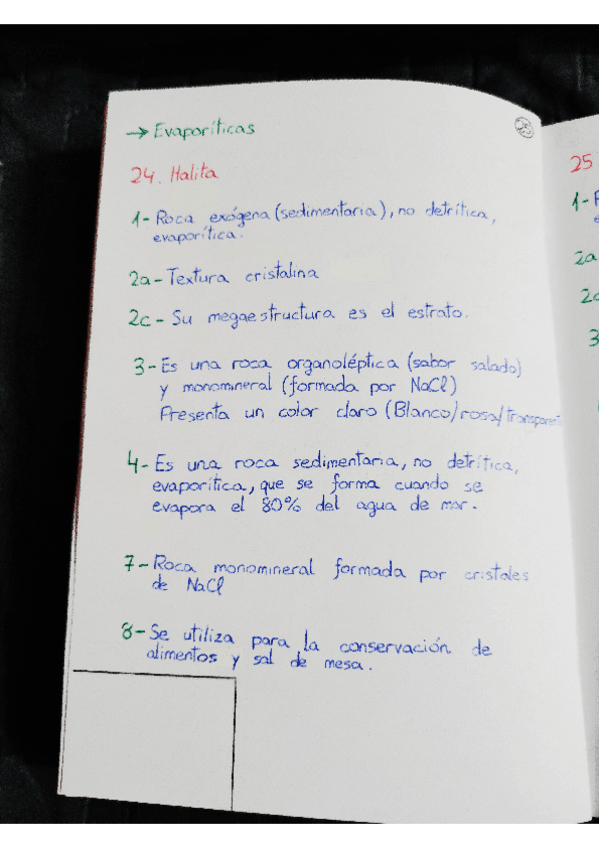 → Evaporíticas
23
24. Halita
1- Roca exógena (sedimentaria), no detrítica,
evaporítica.
2a- Textura cristalina
2c- Su megaestructura es el estrato.
3- Es una roca organoléptica (sabor salado)
y monomineral (formada por NaCl)
Presenta un color claro (Blanco/rosa/transparente
4- Es una roca sedimentaria, no detrítica,
evaporítica, que se forma cuando se
evapora el 80% del agua de mar.
7- Roca monomineral formada por cristales
de NaCl
8- Se utiliza para la conservación de
alimentos y sal de mesa.
25
1-
2a
2c
3